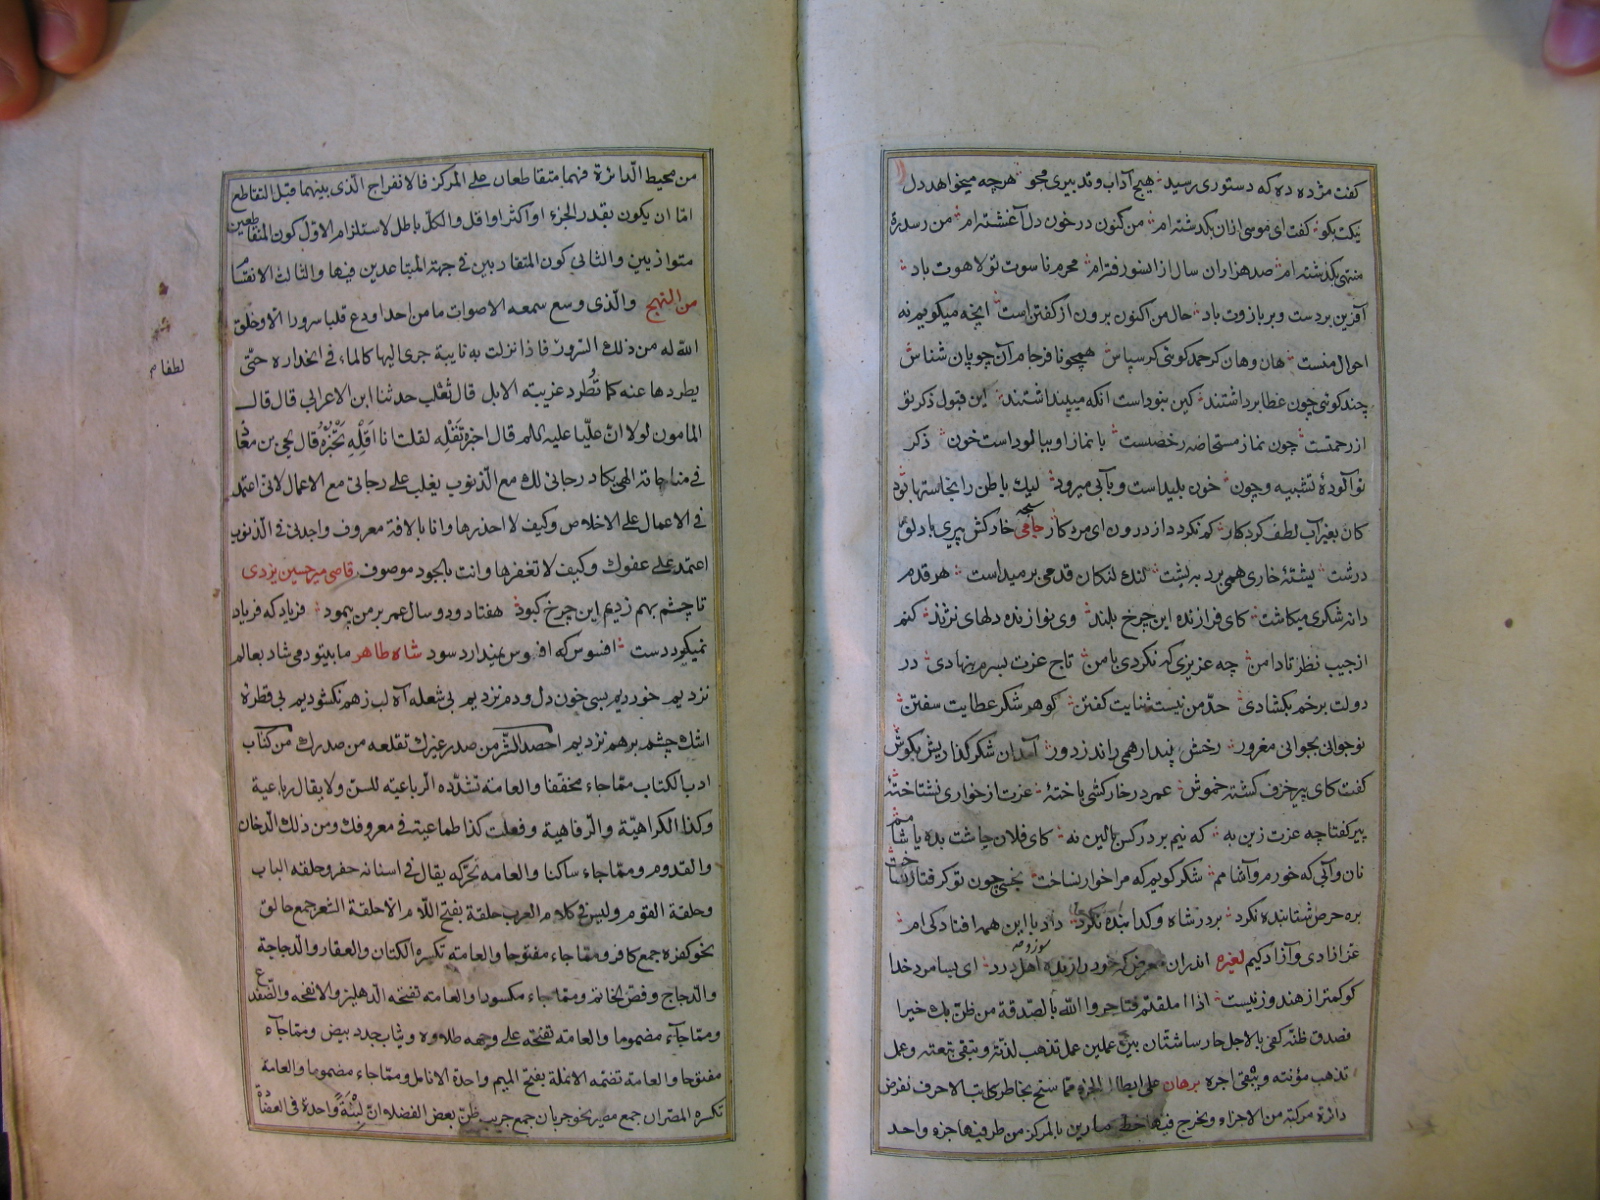 کفت مژده ده که دستوری رسید هیچ آداب و تدبیری مجو هرچه میخواهد دل
تنکت بکو کفت ای موسی از ان بکذشته ام من کنون در خون دل آغشته ام من ز سدره
منتهی بکذشته ام صد هزاران سال از انسو رفته ام محرم ناسوت تو لاهوت باد
آفرین بر دست و بر بازوت باد حال من اکنون برون از کفتن است اینچه میکویم نه
احوال منست هان و هان کر حمد کوئی کر سپاس همچو نافرجام آن چوپان شناس
چند کوئی چون غطا برداشتند کین نبود است انکه میپنداشتند این قبول ذکر تو
از رحمتست چون نماز مستحاضه رخصتست با نماز او بیالود است خون ذکر
تو آلوده تشبیه و چون خون پلید است و بآبی میرود لیک باطن را نجاستها بود
کان بغیر آب لطف کردکار کم نکردد از درون ای مرد کار جامی خارکش پیری با دلق
درشت پشته خاری همی برد به پشت لنک لنکان قدمی بر میداشت هر قدم
دانه شکری میکاشت کای فرازنده این چرخ بلند وی نوازنده دلهای نژند کنم
از جیب نظر تا دامن چه عزیزی که نکردی با من تاج عزت بسرم بنهادی در
دولت برخم بکشادی حدّ من نیست ثنایت کفتن کوهر شکر عطایت سفتن
نوجوانی بجوانی مغرور رخش پندار همی راند ز دور آمد آن شکر کذاریش بکوش
کفت کای پیر خرف کشته خموش عمر در خارکشی باخته عزت از خواری نشناخته
پیر کفتا چه عزت زین به که نیم بر در کس بالین نه کای فلان چاشت بده یا شامم
نان و آبی که خورم و آشامم شکر کویم که مرا خوار نساخت بخسی چون تو کرفتار نساخت
بره حرص شتابنده نکرد بر در شاه و کدا بنده نکرد داد با این همه افتادکی ام
عز ازادی و آزادکیم لغیره اهل درد ای بسا مرد خدا
کو کمتر از هندو زنیست اذا املقتم فتاجروا الله بالصّدقة من ظنّ بك خيرا
فصدق ظنّه كفى بالاجل حارسا شتان بين عملين عمل تذهب لذّته وتبقى تبعته وعمل
تذهب مؤنته ويبقى اجره برهان على ابطال الجزء مما سنح بخاطر كاتب الاحرف نفرض
دائرة مركبة من الاجزاء ونخرج فيها خطين مارين بالمركز من طرفيها جزء واحد
من محيط الدّائرة فهما متقاطعان على المركز فالانفراج الّذى بينهما قبل التقاطع
امّا ان يكون بقدر الجزء او اكثر او اقل والكلّ باطل لاستلزام الاوّل كون المتقاطعين
متوازيين والثانى كون المتقاربين فى جهة المتباعدين فيها والثالث الانقسام
من النهج والّذى وسع سمعه الاصوات ما من احد اودع قلبا سرورا الا وخلق
الله له من ذلك السّرور فاذا نزلت به نايبة جرى اليها كالماء فى انحداره حتّى
يطردها عنه كما تُطرد غريبة الابل قال ثعْلب حدثنا ابن الاعرابى قال قال
المامون لولا انّ عليّا عليه السلام قال اخبر تَقْلِه لقلت انا اَقْلِهِ تَخْبُرْ قال يحيى بن معاذ
فى مناجاته الهى يكاد رجائى لك مع الذّنوب يغلب على رجائى مع الاعمال لانى اعتمد
فى الاعمال على الاخلاص وكيف لا احذرها وانا بالافة معروف واجدنى فى الذنوب
اعتمد على عفوك وكيف لا تغفرها وانت بالجود موصوف قاضی میر حسین یزدی
تا چشم بهم زدیم این چرخ کبود هفتاد و دو سال عمر بر من پیمود فریاد که فریاد
نمیکیرد دست افسوس که افسوس نمیدارد سود شاه طاهر ما بیتو دمی شاد بعالم
نزدیم خوردیم بسی خون دل و دم نزدیم بی شعله آه لب ز هم نکشودیم بی قطره
اشک چشم بر هم نزدیم احصد الشّر من صدر غيرك تقلعه من صدرك من كتاب
ادب الكتاب ممّا جاء مخففا والعامة تشدّده الرّباعية للسن ولا يقال رباعيّة
وكذا الكراهيّة والرّفاهية وفعلت كذا طماعية فى معروفك ومن ذلك الدّخان
والقدوم وممّا جاء ساكنا والعامة تحرّكه يقال فى اسنانه حفر وحلقة الباب
وحلقة القوم وليس فى كلام العرب حلقة بفتح اللام الا حلقة الشعر جمع حالق
نحو كفرة جمع كافر وممّا جاء مفتوحا والعامة تكسره الكتان والعقار والدّجاجة
والدّجاج وفصّ الخاتم وممّا جاء مكسورا والعامة تفتحه الدّهليز والانفحة والضّفدع
وممّا جآء مضموما والعامة تفتحه على وجهه طلاوة وثياب جدد بيض وممّا جآء
مفتوحا والعامة تضمّه الانملة بفتح الميم واحدة الانامل وممّا جاء مضموما والعامة
تكسره المصران جمع مصير نحو جربان جمع جريب ظنّ بعض الفضلاء انّ